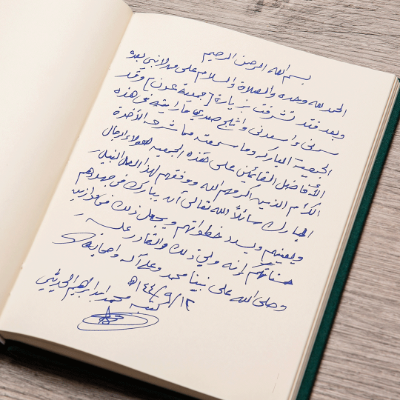 بسم الله الرحمن الرحيم
الحمد لله وحده والصلاة والسلام على من لا نبي بعده
وبعد فقد تشرفت بزيارة [جمعية عون] وقد
سرني وأسعدني وأثلج صدري ما رأيته في هذه
الجمعية المباركة وما سمعته مما شرح الأخوة
الأفاضل القائمين على هذه الجمعية هؤلاء الرجال
الكرام الذين أكرمهم الله ووفقهم لهذا العمل النبيل
المبارك سائلاً الله تعالى أن يبارك في جهدهم
ويعينهم ويسدد خطوتهم ويجعل ذلك في موازين
حسناتهم إنه ولي ذلك والقادر عليه
وصلى الله على نبينا محمد وعلى آله وأصحابه
١٤٤٦/٩/١٢هـ
كتبه محمد إبراهيم